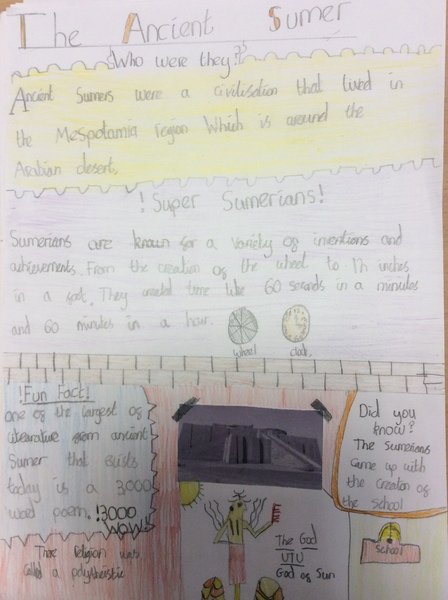 The Ancient Sumer
Who were they?
Ancient Sumers were a civilisation that lived in
the Mespotamia region Which is around the
Arabian desert.
! Super Sumerians!
Sumerians are known for a variety of inventions and
achievements. From the creation of the wheel to 12 inches
in a foot. They created time like 60 seconds in a minutes
and 60 minutes in a hour.
wheel clock.
!Fun Fact!
one of the largest of
literature from ancient
Sumer that exists
today is a 3000
word poem. !3000
WOW!
There Religion was
called a polytheistic
The God
UTU
God of Sun
Did you
know?
The sumerians
came up with
the creation of
the school
School